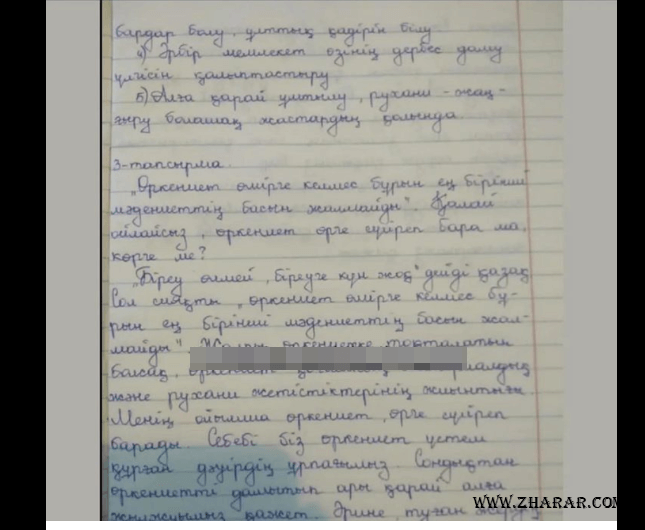 бардар болу, ұлттық қадірін білу
4) Әрбір мемлекет өзінің дербес даму
үлгісін қалыптастыру
5) Алға қарай ұмтылу, рухани - жаң-
ғыру болашақ жастардың қолында.
3-тапсырма.
"Өркениет өмірге келмес бұрын ең бірінші
мәдениеттің басын жалмайды". Қалай
ойлайсыз, өркениет өрге сүйреп бара ма,
көрге ме?
"Біреу өлмей, біреуге күн жоқ" дейді қазақ
Сол сияқты "өркениет өмірге келмес бұ-
рын ең бірінші мәдениеттің басын жал-
майды". Жалпы өркениетке тоқталатын
болсақ, өркениет
және рухани жетістіктерінің жиынтығы.
Менің ойымша өркениет, өрге сүйреп
барады. Себебі біз өркениет үстем
құрған дәуірдің ұрпағымыз. Сондықтан
өркениетті дамытып ары қарай алға
жылжуымыз қажет. Әрине, туған
WWW.ZHARAR.COM